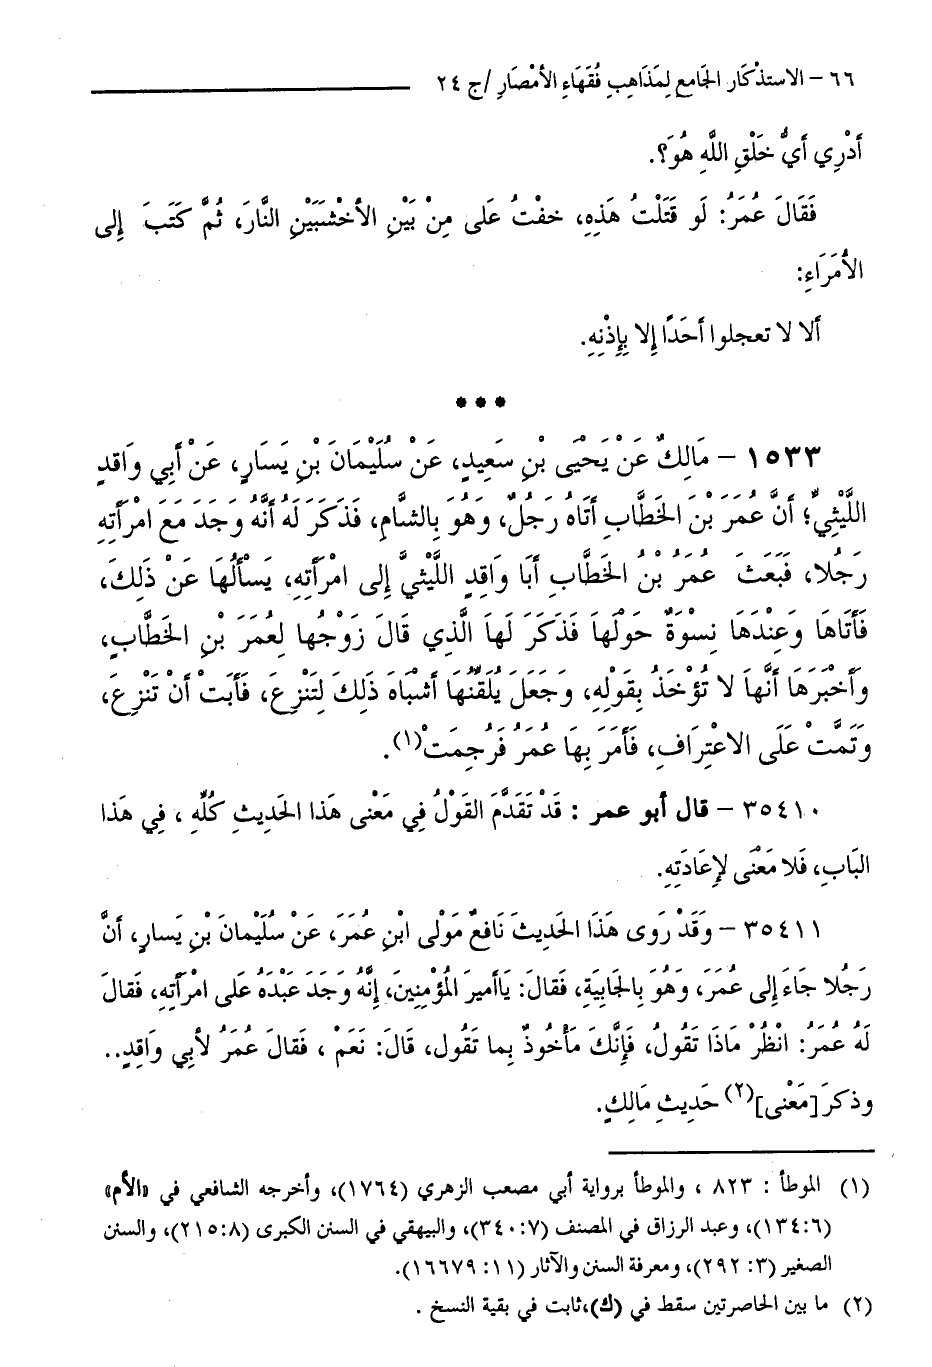 ٦٦ – الاستذْكَار الجَامع لِمَذَاهِبِ فُقَهَاءِ الأمْصَارِ /ج ٢٤
أدْرِي أيُّ خَلْقِ اللَّهِ هُوَ؟.
فَقَالَ عُمَرُ: لَو قَتَلْتُ هَذِهِ، خفْتُ عَلى مِنْ بَيْنِ الأخْشَبَيْنِ النَّارَ، ثُمَّ كَتَبَ إِلى
الأُمَرَاءِ:
ألا لا تعجلوا أحَدًا إِلا بِإِذْنِهِ.
***
١٥٣٣ – مَالِكٌ عَنْ يَحْيَى بْنِ سَعِيدٍ، عَنْ سُلَيْمَانَ بْنِ يَسَارٍ، عَنْ أبِي وَاقدٍ
اللَّيْثِيِّ؛ أنَّ عُمَرَ بْنَ الخَطَّابِ أتَاهُ رَجُلٌ، وَهُوَ بِالشَّامِ، فَذَكَرَ لَهُ أنَّهُ وَجَدَ مَعَ امْرَأتِهِ
رَجُلا، فَبَعَثَ عُمَرُ بْنُ الخَطَّابِ أبَا وَاقِدٍ اللَّيْثيَّ إِلى امْرَأتِهِ، يَسْألُهَا عَنْ ذَلِكَ،
فَأتَاهَا وَعِنْدَهَا نِسْوَةٌ حَوْلَهَا فَذَكَرَ لَهَا الَّذِي قَالَ زَوْجُهَا لِعُمَرَ بْنِ الخَطَّابِ،
وَأخْبَرَهَا أنَّهَا لا تُؤْخَذُ بِقَوْلِهِ، وَجَعَلَ يُلَقِّنُهَا أشْبَاهَ ذَلِكَ لِتَنْزِعَ، فَأبَتْ أنْ تَنْزِعَ،
وَتَمَّتْ عَلَى الاعْتِرَافِ، فَأمَرَ بِهَا عُمَرُ فَرُجِمَتْ(١).
٣٥٤١٠ – قال أبو عمر : قَدْ تَقَدَّمَ القَوْلُ فِي مَعْنى هَذا الحَدِيثِ كُلِّهِ ، فِي هَذا
البَابِ، فَلا مَعْنَى لإِعَادَتِهِ.
٣٥٤١١ – وَقَدْ رَوى هَذَا الحَدِيثَ نَافعٌ مَوْلى ابْنِ عُمَرَ، عَنْ سُلَيْمانَ بْنِ يَسارٍ، أنَّ
رَجُلا جَاءَ إِلى عُمَرَ، وَهُوَ بِالجَابِيَةِ، فَقالَ: يَاأميرَ المُؤْمِنِينَ، إِنَّهُ وَجَدَ عَبْدَهُ عَلى امْرأتِهِ، فَقالَ
لَهُ عُمَرُ: انْظُرْ مَاذَا تَقُولُ، فَإِنَّكَ مَأْخُوذٌ بِما تَقُول، قَالَ: نَعَمْ ، فَقالَ عُمَرُ لأبِي واقِدٍ..
وذكرَ [مَعْنى](٢) حَدِيثِ مَالِكٍ.
(١) الموطأ : ٨٢٣ ، والموطأ برواية أبي مصعب الزهري (١٧٦٤)، وأخرجه الشافعي في «الأم»
(١٣٤:٦)، وعبد الرزاق في المصنف (٣٤٠:٧)، والبيهقي في السنن الكبرى (٢١٥:٨)، والسنن
الصغير (٣: ٢٩٢)، ومعرفة السنن والآثار (١١: ١٦٦٧٩).
(٢) ما بين الحاصرتين سقط في (ك)،ثابت في بقية النسخ .